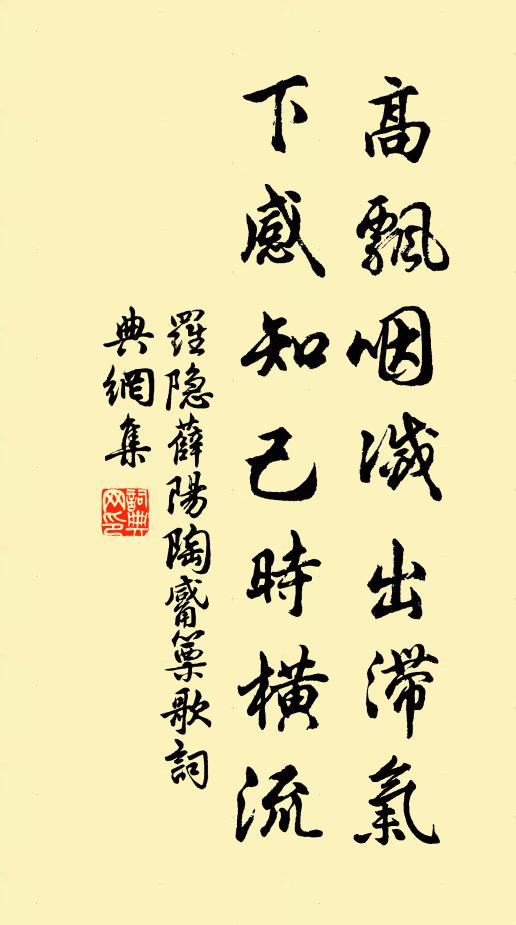 高飄咽滅出滯氣
下感知己時橫流
羅隱薛陽陶觱篥歌詞
典網集
詞典網印